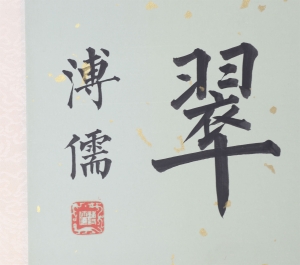 翠
溥儒